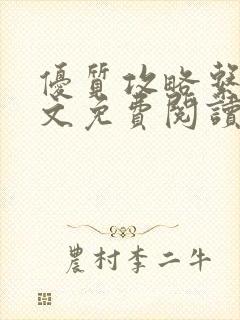 優質攻略繫
文免費閱讀
農村李二牛